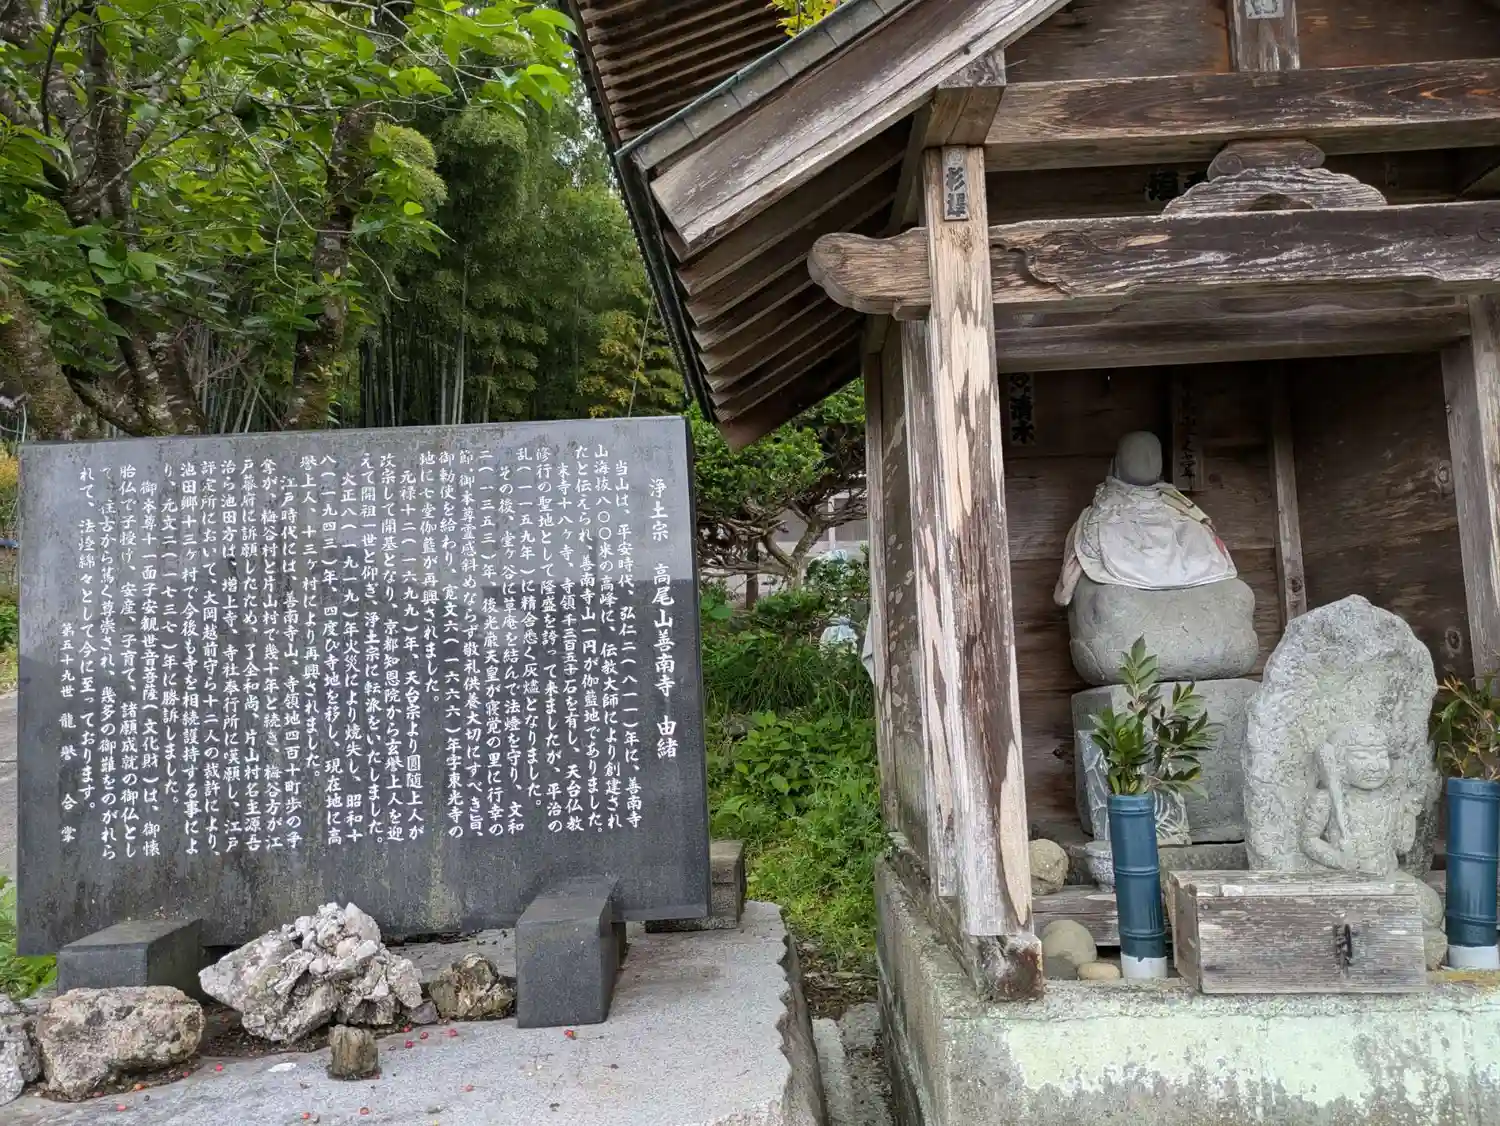 浄土宗 高尾山善南寺 由緒
当山は、平安時代、弘仁二(八一一)年に、善南寺
山海抜八〇〇米の高峰に、伝教大師により創建され
たと伝えられ、善南寺山一円が伽藍地でありました。
末寺十八ヶ寺、寺領千三百五十石を有し、天台仏教
修行の聖地として隆盛を誇って来ましたが、平治の
乱(一一五九年)に精舎悉く灰燼となりました。
その後、堂ヶ谷に草庵を結んで法燈を守り、文和
二(一三五三)年、後光厳天皇が寝覚の里に行幸の
節御本尊霊感斜めならず敬礼供養大切にすべき旨、
御勅使を給わり、寛文六(一六六六)年字東光寺の
地に七堂伽藍が再興されました。
元禄十二(一六九九)年、天台宗より圓随上人が
改宗して開基となり、京都知恩院から玄誉上人を迎
えて開祖一世と仰ぎ、浄土宗に転派をいたしました。
大正八(一九一九)年火災により焼失し、昭和十
八(一九四三)年、四度び寺地を移し、現在地に高
誉上人、十三ヶ村により再興されました。
江戸時代には、善南寺山、寺領地四百十町歩の争
奪が、梅谷村と片山村で幾十年と続き、梅谷方が江
戸幕府に訴願したため、了全和尚、片山村名主源吾
治ら池田方は、増上寺、寺社奉行所に嘆願し、江戸
評定所において、大岡越前守ら十二人の裁許により、
池田郷十三ヶ村で今後も寺を相続護持する事によ
り、元文二(一七三七)年に勝訴しました。
御本尊十一面子安観世音菩薩(文化財)は、御懐
胎仏で子授け、安産、子育て、諸願成就の御仏とし
て、往古から篤く尊崇され、幾多の御難をのがれら
れて、法燈綿々として今に至っております。
第五十九世 龍誉 合掌